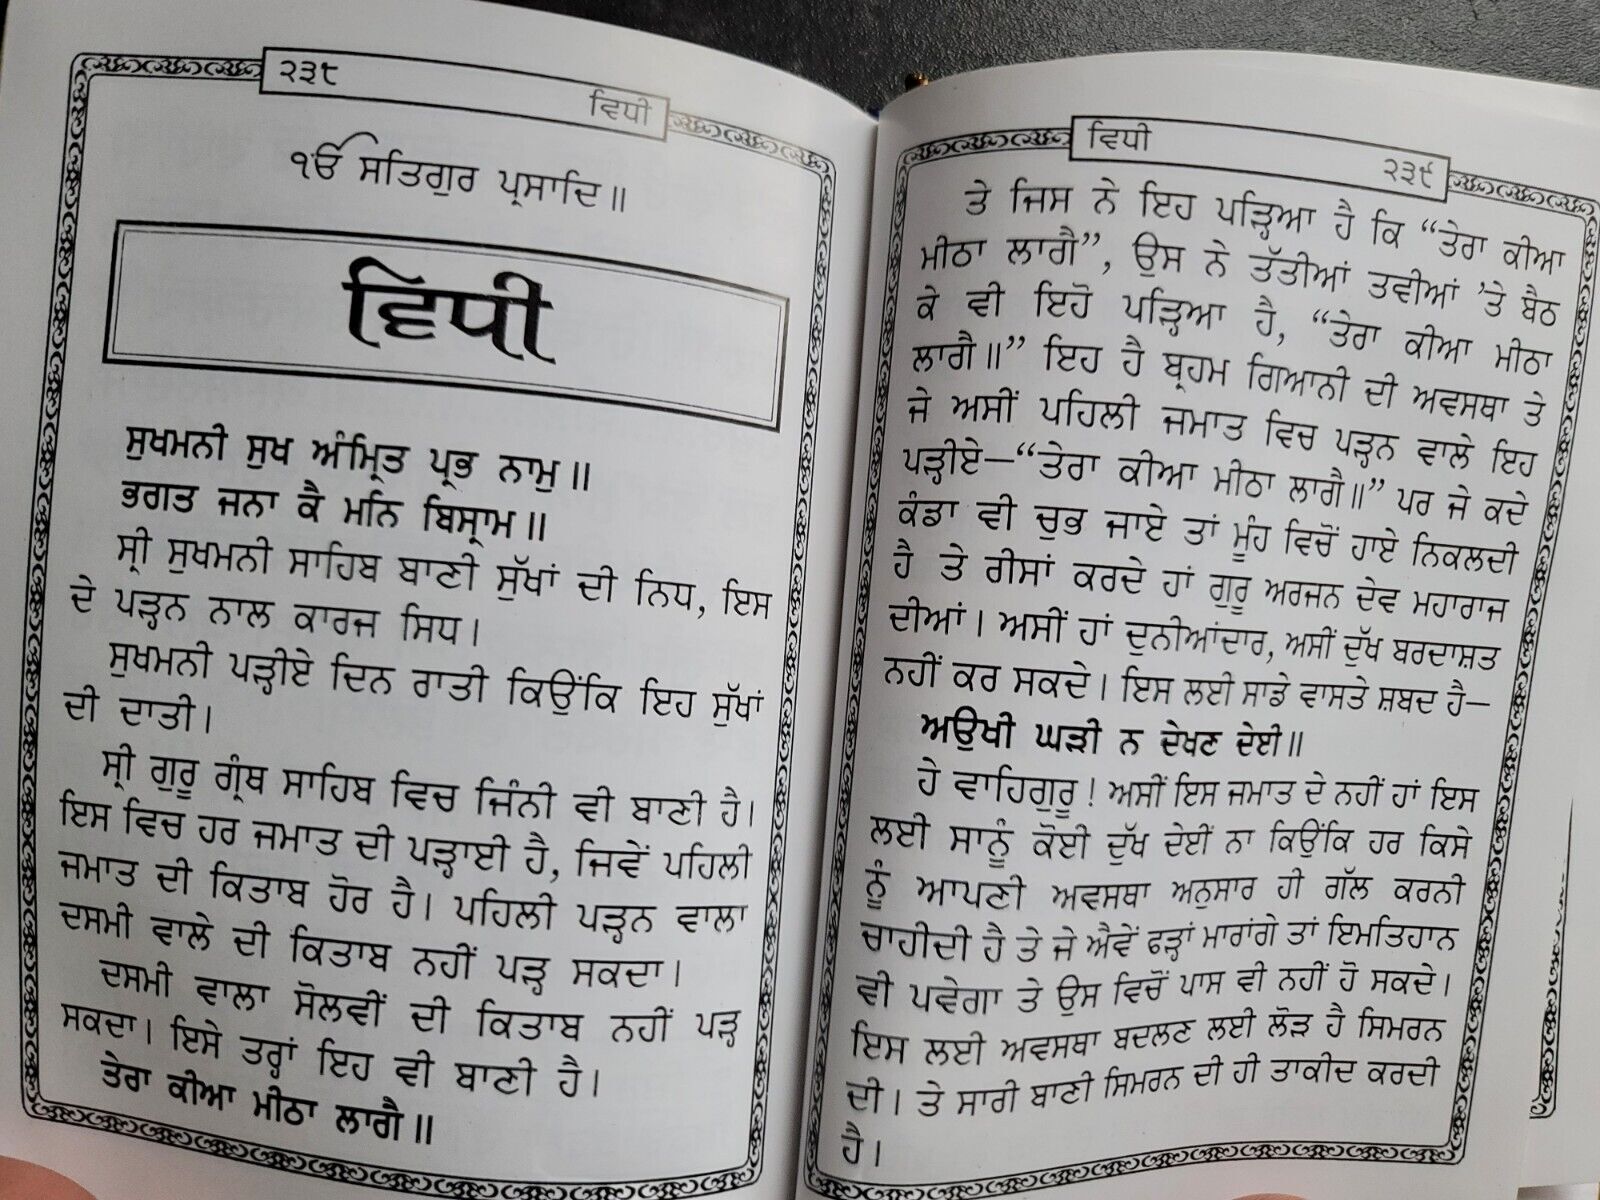 ੨੩੮
ਵਿਧੀ
ੴ ਸਤਿਗੁਰ ਪ੍ਰਸਾਦਿ॥
ਵਿਧੀ
ਸੁਖਮਨੀ ਸੁਖ ਅੰਮ੍ਰਿਤ ਪ੍ਰਭ ਨਾਮੁ॥
ਭਗਤ ਜਨਾ ਕੈ ਮਨਿ ਬਿਸ੍ਰਾਮ॥
ਸ੍ਰੀ ਸੁਖਮਨੀ ਸਾਹਿਬ ਬਾਣੀ ਸੁੱਖਾਂ ਦੀ ਨਿਧ, ਇਸ
ਦੇ ਪੜ੍ਹਨ ਨਾਲ ਕਾਰਜ ਸਿਧ।
ਸੁਖਮਨੀ ਪੜ੍ਹੀਏ ਦਿਨ ਰਾਤੀ ਕਿਉਂਕਿ ਇਹ ਸੁੱਖਾਂ
ਦੀ ਦਾਤੀ।
ਸ੍ਰੀ ਗੁਰੂ ਗ੍ਰੰਥ ਸਾਹਿਬ ਵਿਚ ਜਿੰਨੀ ਵੀ ਬਾਣੀ ਹੈ।
ਇਸ ਵਿਚ ਹਰ ਜਮਾਤ ਦੀ ਪੜ੍ਹਾਈ ਹੈ, ਜਿਵੇਂ ਪਹਿਲੀ
ਜਮਾਤ ਦੀ ਕਿਤਾਬ ਹੋਰ ਹੈ। ਪਹਿਲੀ ਪੜ੍ਹਨ ਵਾਲਾ
ਦਸਮੀ ਵਾਲੇ ਦੀ ਕਿਤਾਬ ਨਹੀਂ ਪੜ੍ਹ ਸਕਦਾ।
ਦਸਮੀ ਵਾਲਾ ਸੋਲਵੀਂ ਦੀ ਕਿਤਾਬ ਨਹੀਂ ਪੜ੍ਹ
ਸਕਦਾ। ਇਸੇ ਤਰ੍ਹਾਂ ਇਹ ਵੀ ਬਾਣੀ ਹੈ।
ਤੇਰਾ ਕੀਆ ਮੀਠਾ ਲਾਗੈ॥
ਵਿਧੀ
੨੩੯
ਤੇ ਜਿਸ ਨੇ ਇਹ ਪੜ੍ਹਿਆ ਹੈ ਕਿ “ਤੇਰਾ ਕੀਆ
ਮੀਠਾ ਲਾਗੈ”, ਉਸ ਨੇ ਤੱਤੀਆਂ ਤਵੀਆਂ ’ਤੇ ਬੈਠ
ਕੇ ਵੀ ਇਹੋ ਪੜ੍ਹਿਆ ਹੈ, “ਤੇਰਾ ਕੀਆ ਮੀਠਾ
ਲਾਗੈ॥” ਇਹ ਹੈ ਬ੍ਰਹਮ ਗਿਆਨੀ ਦੀ ਅਵਸਥਾ ਤੇ
ਜੇ ਅਸੀਂ ਪਹਿਲੀ ਜਮਾਤ ਵਿਚ ਪੜ੍ਹਨ ਵਾਲੇ ਇਹ
ਪੜ੍ਹੀਏ—“ਤੇਰਾ ਕੀਆ ਮੀਠਾ ਲਾਗੈ॥” ਪਰ ਜੇ ਕਦੇ
ਕੰਡਾ ਵੀ ਚੁਭ ਜਾਏ ਤਾਂ ਮੂੰਹ ਵਿਚੋਂ ਹਾਏ ਨਿਕਲਦੀ
ਹੈ ਤੇ ਰੀਸਾਂ ਕਰਦੇ ਹਾਂ ਗੁਰੂ ਅਰਜਨ ਦੇਵ ਮਹਾਰਾਜ
ਦੀਆਂ। ਅਸੀਂ ਹਾਂ ਦੁਨੀਆਂਦਾਰ, ਅਸੀਂ ਦੁੱਖ ਬਰਦਾਸ਼ਤ
ਨਹੀਂ ਕਰ ਸਕਦੇ। ਇਸ ਲਈ ਸਾਡੇ ਵਾਸਤੇ ਸ਼ਬਦ ਹੈ—
ਅਉਖੀ ਘੜੀ ਨ ਦੇਖਣ ਦੇਈ॥
ਹੇ ਵਾਹਿਗੁਰੂ! ਅਸੀਂ ਇਸ ਜਮਾਤ ਦੇ ਨਹੀਂ ਹਾਂ ਇਸ
ਲਈ ਸਾਨੂੰ ਕੋਈ ਦੁੱਖ ਦੇਈਂ ਨਾ ਕਿਉਂਕਿ ਹਰ ਕਿਸੇ
ਨੂੰ ਆਪਣੀ ਅਵਸਥਾ ਅਨੁਸਾਰ ਹੀ ਗੱਲ ਕਰਨੀ
ਚਾਹੀਦੀ ਹੈ ਤੇ ਜੇ ਐਵੇਂ ਫੜ੍ਹਾਂ ਮਾਰਾਂਗੇ ਤਾਂ ਇਮਤਿਹਾਨ
ਵੀ ਪਵੇਗਾ ਤੇ ਉਸ ਵਿਚੋਂ ਪਾਸ ਵੀ ਨਹੀਂ ਹੋ ਸਕਦੇ।
ਇਸ ਲਈ ਅਵਸਥਾ ਬਦਲਣ ਲਈ ਲੋੜ ਹੈ ਸਿਮਰਨ
ਦੀ। ਤੇ ਸਾਰੀ ਬਾਣੀ ਸਿਮਰਨ ਦੀ ਹੀ ਤਾਕੀਦ ਕਰਦੀ
ਹੈ।